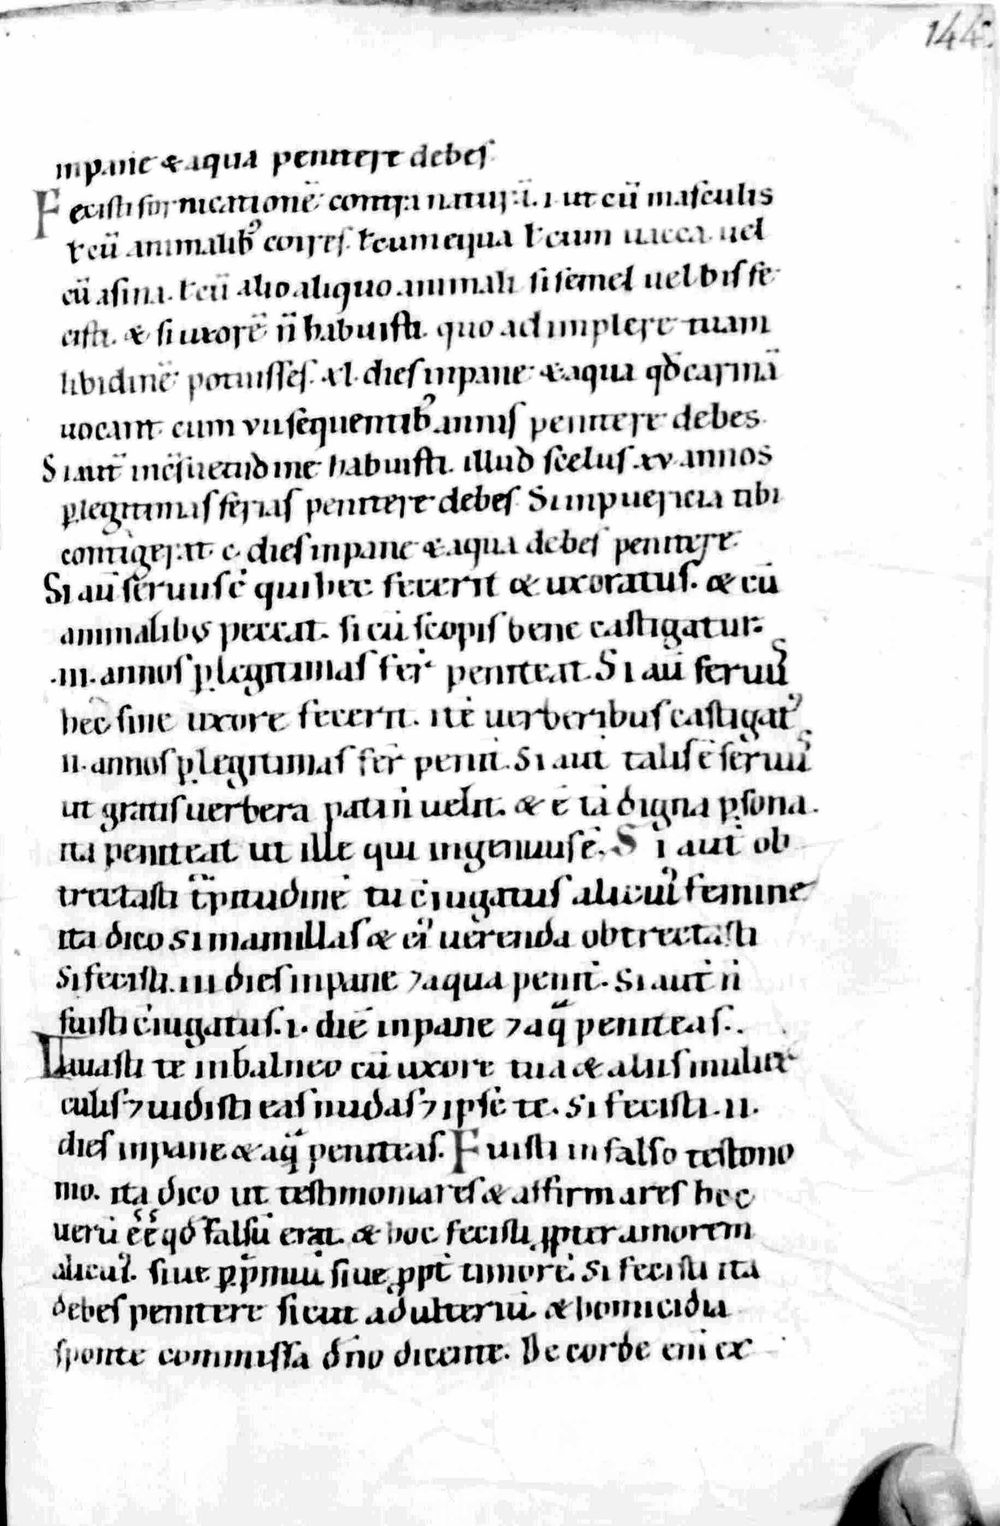 144.
in pane & aqua penitere debes
Fecisti fornicationē contra naturā. i. ut cū masculis
ł cū animalib; coires. ł cum equa ł cum uacca. uel
cū asina. ł cū alio aliquo animali si semel uel bis fe
cisti. & si uxorē ñ habuisti. quo adimplere tuam
libidinē potuisses. xl. dies in pane & aqua qđ carinā
uocant cum vii sequentib; annis penitere debes.
Si aut̄ in c̄suetudine habuisti. illud scelus. xv annos
p legitimas ferias penitere debes. Si in puericia tibi
contigerat. c. dies in pane & aqua debes penitere.
Si aū seruus ē qui hec fecerit & uxoratus. & cū
animalibus peccat. si cū scopis bene castigatur.
.iii. annos p legitimas fer̄ peniteat. Si aū seruus
hec sine uxore fecerit. itē uerberibus castigat᷑
ii. annos p legitimas fer̄ penit̄. Si aut̄ talis ē seruus
ut gratis uerbera pati ñ uelit. & ē tā digna psona.
ita peniteat ut ille qui ingenuus ē. Si aut̄ ob
trectasti t̄pitudinē tu c̄iugatus alicuiꝰ femine
ita dico si mamillas & eiꝰ uerenda obtrectasti
Si fecisti. iii dies in pane ⁊ aqua penit̄. Si aut̄ ñ
fuisti c̄iugatus. i. diē in pane ⁊ aq̄ peniteas.
Lauasti te in balneo cū uxore tua & aliis mulier
culis ⁊ uidisti eas nudas ⁊ ipse te. Si fecisti. ii.
dies in pane & aq̄ peniteas. Fuisti in falso testimo
nio. ita dico ut testimoniares & affirmares hoc
uerū ēē qđ falsū erat. & hoc fecisti ꝓpter amorem
alicuiꝰ. siue ꝓ p̄miū siue ꝓpt̄ timorē. Si fecisti ita
debes penitere sicut adulteriū & homicidia
sponte commissa dño dicente. De corde eni ex